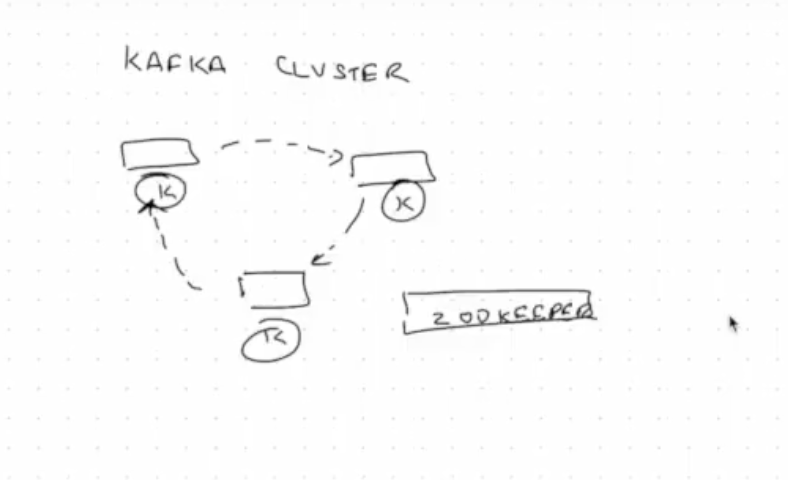 KAFKA CLUSTER
K
K
K
ZOOKEEPER